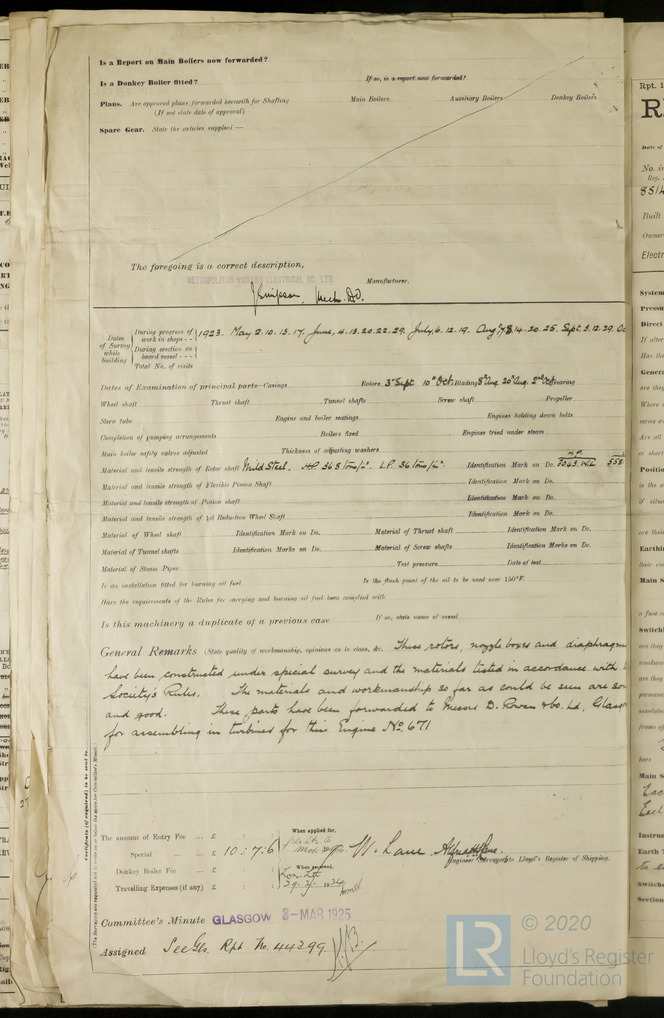 Is a Report on Main Boilers now forwarded?
Is a Donkey Boiler fitted? If so, is a report now forwarded?
Plans. Are approved plans forwarded herewith for Shafting Main Boilers Auxiliary Boilers Donkey Boilers
(If not state date of approval)
Spare Gear. State the articles supplied:—
The foregoing is a correct description,
METROPOLITAN-VICKERS ELECTRICAL CO. LTD. Manufacturer.
Dates of Survey while building
During progress of work in shops - - 1923. May 2. 10. 13. 17. June, 4. 13. 20. 22. 29. July, 6. 12. 19. Aug 7. 8. 14. 20. 25. Sept. 3. 12. 29. Oc
During erection on board vessel - - -
Total No. of visits
Dates of Examination of principal parts—Casings Rotors 3rd Sept 10th Oct. Blading 8th Aug. 20th Aug. 2nd Oct Gearing
Wheel shaft Thrust shaft Tunnel shafts Screw shaft Propeller
Stern tube Engine and boiler seatings Engines holding down bolts
Completion of pumping arrangements Boilers fixed Engines tried under steam
Main boiler safety valves adjusted Thickness of adjusting washers
Material and tensile strength of Rotor shaft Mild Steel. H.P. 36.8 tons/in². L.P. 36 tons/in². Identification Mark on Do. H.P.
Material and tensile strength of Flexible Pinion Shaft Identification Mark on Do.
Material and tensile strength of Pinion shaft Identification Mark on Do.
Material and tensile strength of 1st Reduction Wheel Shaft Identification Mark on Do.
Material of Wheel shaft Identification Mark on Do. Material of Thrust shaft Identification Mark on Do.
Material of Tunnel shafts Identification Marks on Do. Material of Screw shafts Identification Marks on Do.
Material of Steam Pipes Test pressure Date of test
Is an installation fitted for burning oil fuel Is the flash point of the oil to be used over 150°F.
Have the requirements of the Rules for carrying and burning oil fuel been complied with
Is this machinery a duplicate of a previous case If so, state name of vessel
General Remarks (State quality of workmanship, opinions as to class, &c. These rotors, nozzle boxes and diaphragm
have been constructed under special survey and the materials tested in accordance with
Society's Rules. The materials and workmanship so far as could be seen are so
and good. These parts have been forwarded to Messrs D. Rowan & Co. Ld, Glasgo
for assembling in turbines for this Engine No. 671
Certificate (if required) to be sent to
(The Surveyors are requested not to write on or below the space for Committee's Minute.)
The amount of Entry Fee ... £ : : When applied for,
Special ... ... £ 10 : 7 : 6
Donkey Boiler Fee ... £ : : When received,
Travelling Expenses (if any) £ : :
W. Lane
Engineer Surveyor to Lloyd's Register of Shipping.
Committee's Minute GLASGOW 3-MAR 1925
Assigned See Gls. Rpt No. 44399.
© 2020
LR Lloyd's Register
Foundation
Rpt. 1
R
Date of
Reg.
8514
Built
Owner
Electr
System
Pressu
Direct
If alter
Has the
Genera
Positio
Earthin
Main S
Switchb
Main S
Instrum
Earth T
Switche
Section